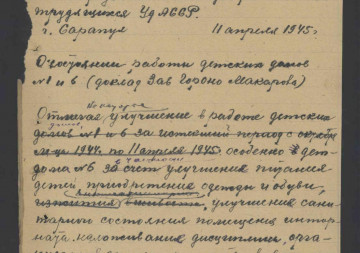 трудящихся УдАССР.
г. Сарапул 11 апреля 1945 г
О состоянии работы детских домов
№ 1 и 6 (доклад Зав Гороно Макарова)
некоторое
Отмечая улучшение в работе детских
домов № 1 и 6 за истекший период с октября
м-ца 1944 по 11 апреля 1945 особенно в дет-
дома № 6 за счет улучшения питания
детей приобретения одежды и обуви,
улучшения сани-
тарного состояния помещения интер-
ната, налаживания дисциплины, орга-